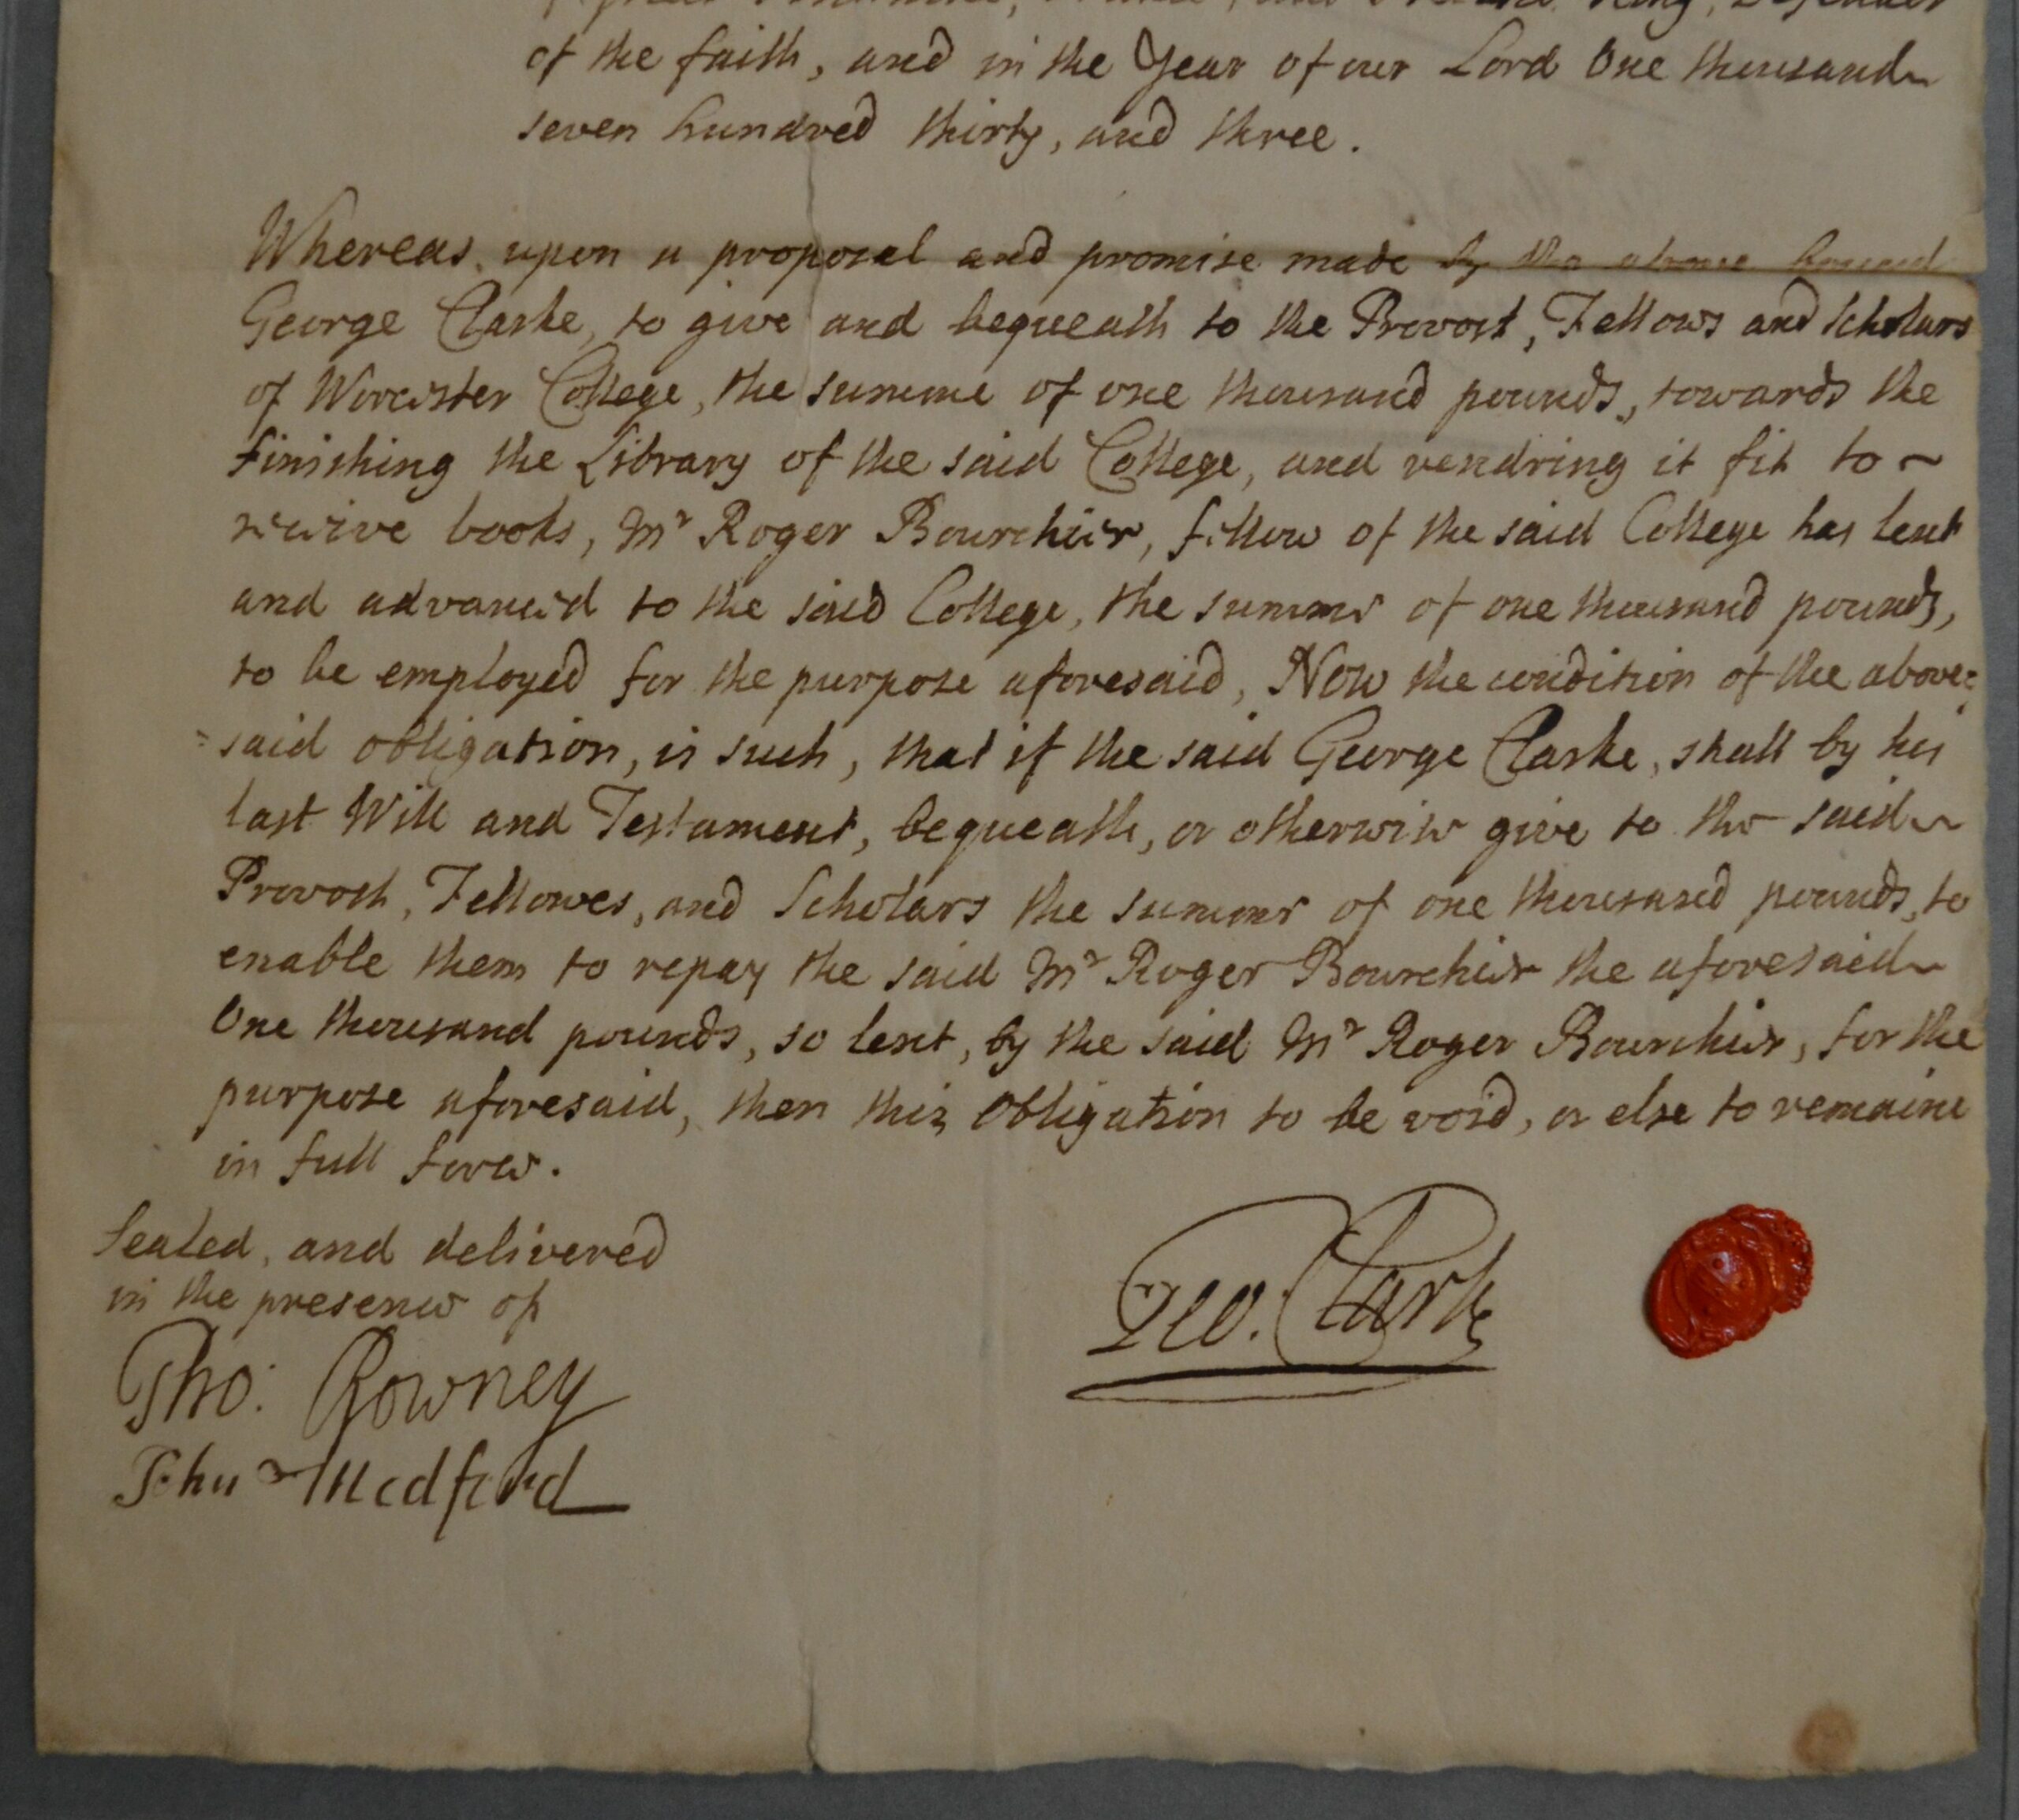 of the faith, and in the Year of our Lord One thousand
seven hundred thirty, and three.
Whereas, upon a proposal and promise made by the above bound
George Clarke, to give and bequeath to the Provost, Fellows and Scholars
of Worcester College, the summe of one thousand pounds, towards the
finishing the Library of the said College, and rendring it fit to
receive books, Mr Roger Bourchier, fellow of the said College has lent
and advanced to the said College, the summe of one thousand pounds,
to be employed for the purpose aforesaid, Now the condition of the above=
=said obligation, is such, that if the said George Clarke, shall by his
last Will and Testament, bequeath, or otherwise give to the said
Provost, Fellowes, and Scholars the summe of one thousand pounds, to
enable them to repay the said Mr Roger Bourchier the aforesaid
One thousand pounds, so lent, by the said Mr Roger Bourchier, for the
purpose aforesaid, then this obligation to be void, or else to remaine
in full force.
Sealed, and delivered
in the presence of
Geo. Clarke
Tho: Rowney
John Medford